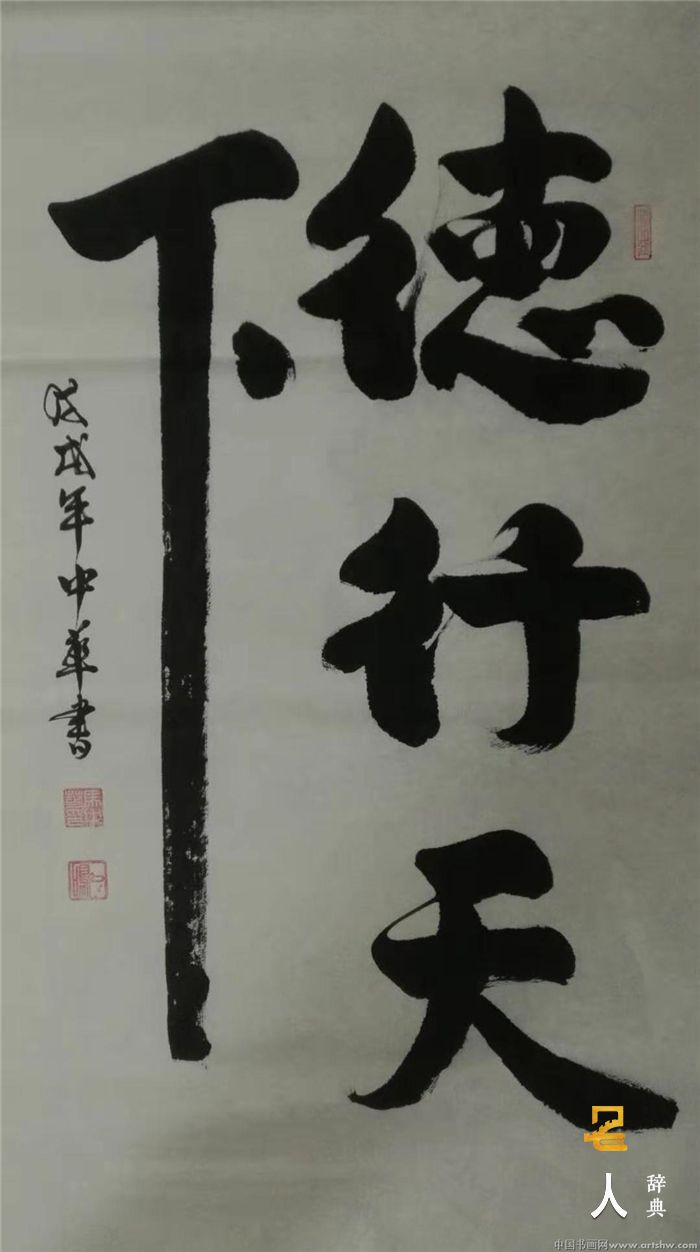 德行天
下
戊戌年中华書
名
人
辞典
中国书画网www.artshw.com